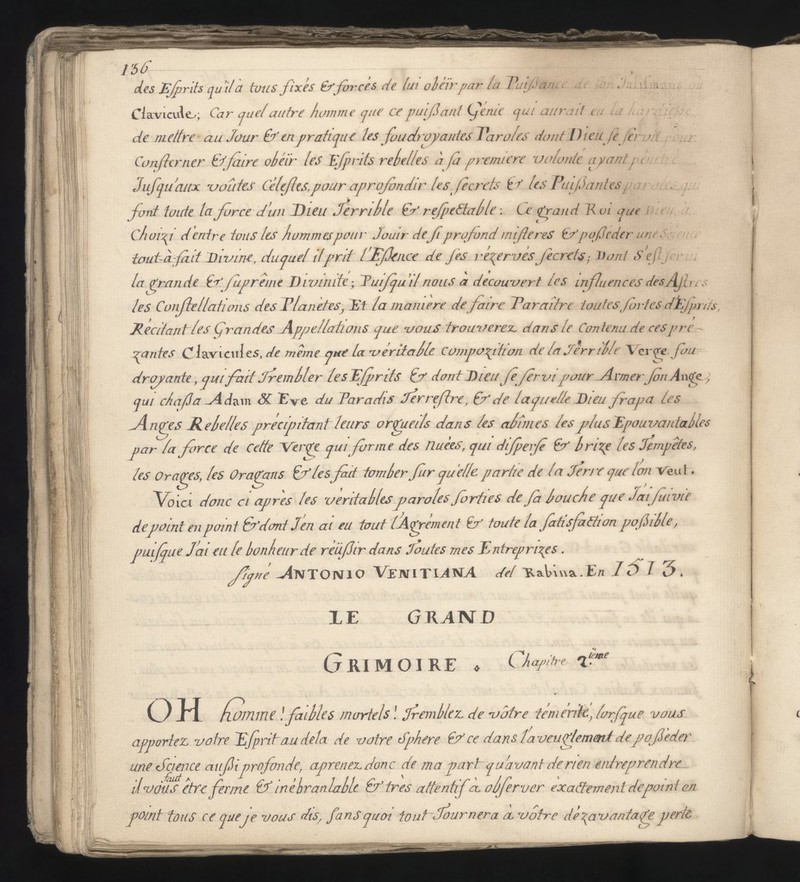 136
des Esprits qu'il a tous fixés & forcés de lui obéir par la Puissance de son Talisman ou
Clavicule; Car quel autre homme que ce puissant Génie qui aurait eu la hardiesse
de mettre au Jour & en pratique les foudroyantes Paroles dont Dieu se servit pour
Consterner & faire obéir les Esprits rebelles à sa premiere volonté ayant pénétré
Jusqu'aux voûtes Célestes, pour aprofondir les secrets & les Puissantes paroles qui
font toute la force d'un Dieu Terrible & respectable: Ce grand Roi que Dieu a
Choizi d'entre tous les hommes pour Jouir de si profond misteres & posséder une Science
tout-à-fait Divine, duquel il prit l'Essence de ses rézervés secrets; Dont S'est servi
la grande & suprême Divinité; Puisqu'il nous a découvert les influences des Astres
les Constellations des Planetes, Et la maniére de faire Paraître toutes sortes d'Esprits,
Récitant les Grandes Appellations que vous trouverez dans le Contenu de ces pré-
zantes Clavicules, de même que la véritable Compozition de la Terrible Verge fou-
droyante, qui fait Trembler les Esprits & dont Dieu se servi pour Armer son Ange;
qui chassa Adam & Eve du Paradis Terrestre, & de laquelle Dieu frapa les
Anges Rebelles précipitant leurs orgueils dans les abîmes les plus Epouvantables
par la force de cette Verge qui forme des Nuées, qui disperse & brize les Tempêtes,
les Orages, les Oragans & les fait tomber sur qu'elle partie de la Terre que l'on veut.
Voici donc ci après les véritables paroles sorties de sa bouche que J'ai suivie
de point en point & dont J'en ai eu tout l'Agrément & toute la satisfaction possible,
puisque J'ai eu le bonheur de réüssir dans Toutes mes Entreprizes.
signé ANTONIO VENITIANA del Rabina. En 1513.
LE GRAND
GRIMOIRE. Chapitre 2.ieme
OH homme! faibles mortels! Tremblez de vôtre témérité, lorsque vous
apportez votre Esprit au dela de votre Sphere & ce dans l'aveuglement de posséder
une Science aussi profonde, aprenez donc de ma part qu'avant de rien entreprendre
il vous faut être ferme & inébranlable & très attentif à observer exactement de point en
point tous ce que je vous dis, sans quoi tout Tournera à vôtre dézavantage perte